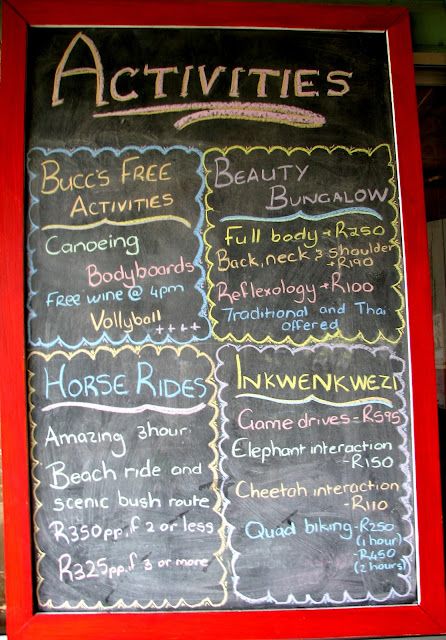 ACTIVITIES
BUCC'S FREE
ACTIVITIES
Canoeing
Bodyboards
Free wine @ 4pm
Vollyball
++++
BEAUTY
BUNGALOW
Full body → R250
Back, neck & shoulder
→ R190
Reflexology → R100
Traditional and Thai
offered
HORSE RIDES
Amazing 3hour
Beach ride and
scenic bush route
R350pp, if 2 or less
R325pp, if 3 or more
INKWENKWEZI
Game drives = R595
Elephant interaction
- R150
Cheetah interaction
- R110
Quad biking - R250
(1 hour)
- R450
(2 hours)